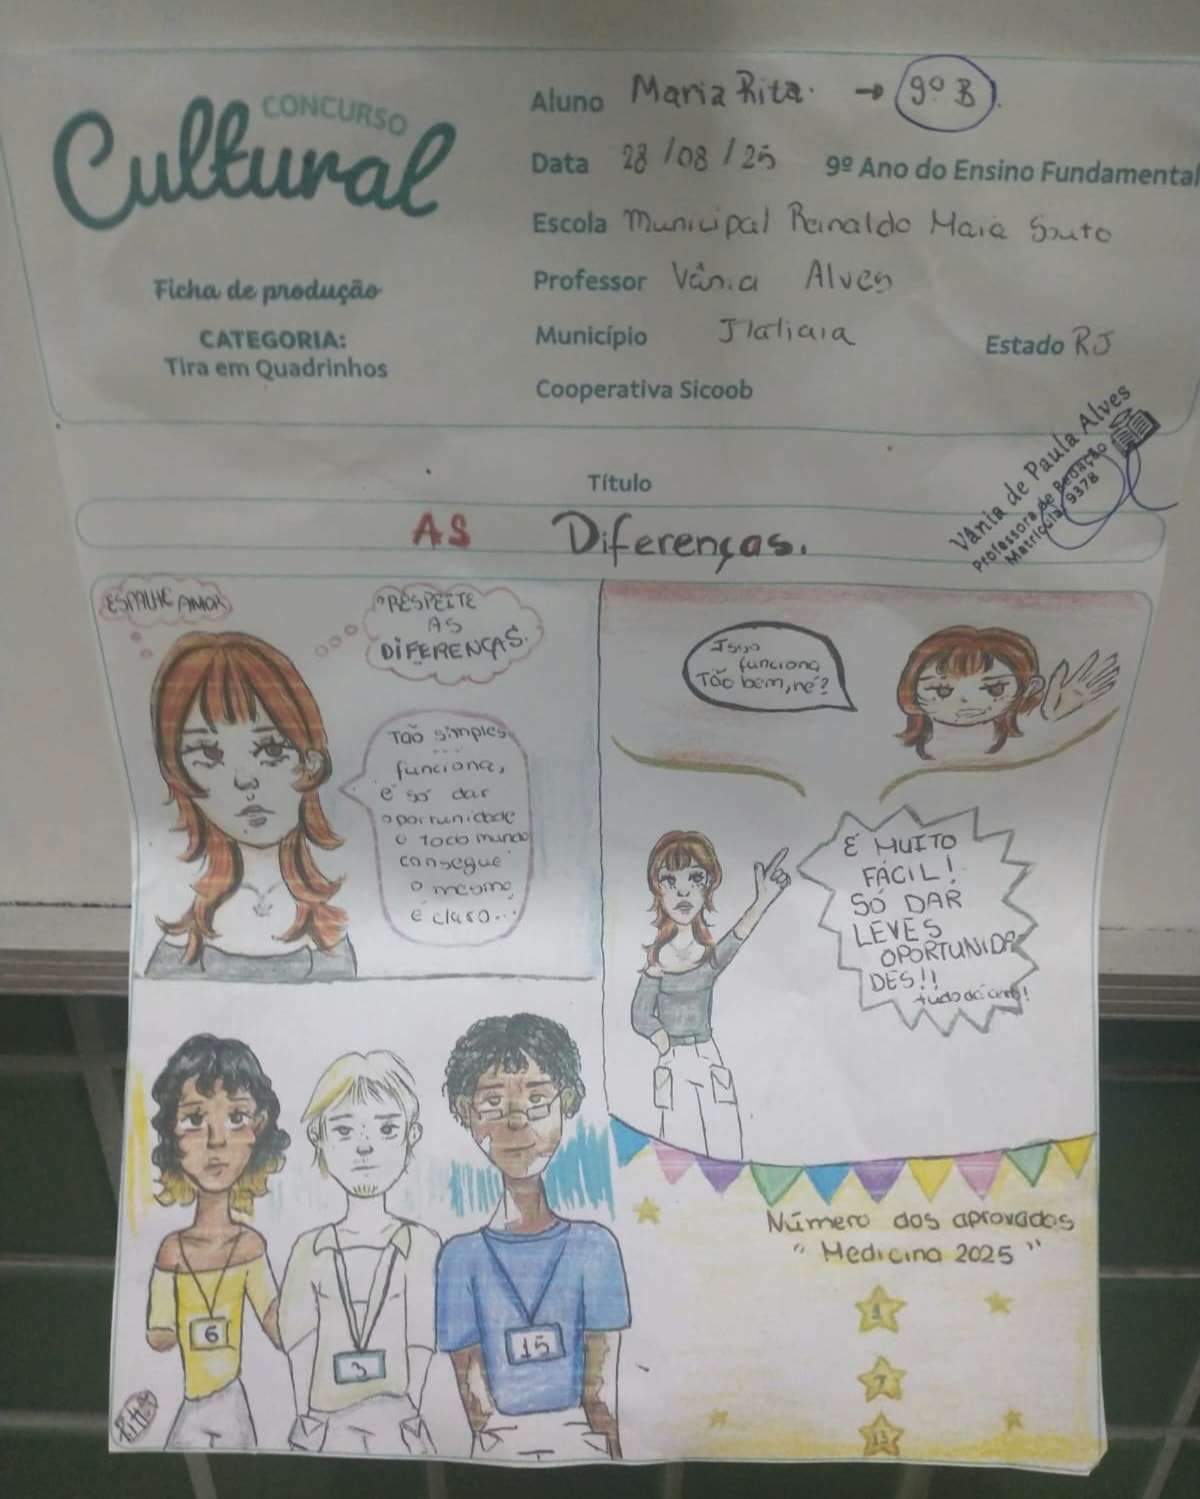 CONCURSO
Cultural
Ficha de produção
CATEGORIA:
Tira em Quadrinhos
Aluno Maria Rita. → 9º B.
Data 28 / 08 / 25 9º Ano do Ensino Fundamental
Escola Municipal Reinaldo Maia Souto
Professor Vânia Alves
Município Itatiaia Estado RJ
Cooperativa Sicoob
Vânia de Paula Alves
Professora de Redação
Matrícula: 9378
Título
AS Diferenças.
ESPALHE AMOR
"RESPEITE
AS
DIFERENÇAS.
Tão simples
...
funciona,
é só dar
oportunidade
e todo mundo
consegue
o mesmo,
é claro...
Isso
funciona
Tão bem, né?
É MUITO
FÁCIL!
SÓ DAR
LEVES
OPORTUNIDA
DES!!
tudo dá certo!
6
3
15
Número dos aprovados
" Medicina 2025 "
7
13